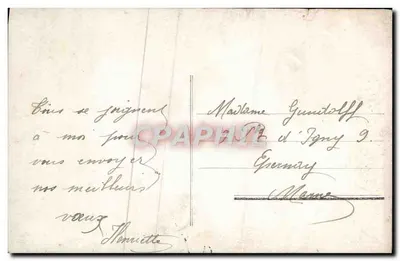 Tous se joignent
à moi pour
vous envoyer
nos meilleurs
vœux
Henriette
Madame Gundolff
Pl d'Igny 9
Epernay
Marne
CPAPHIL